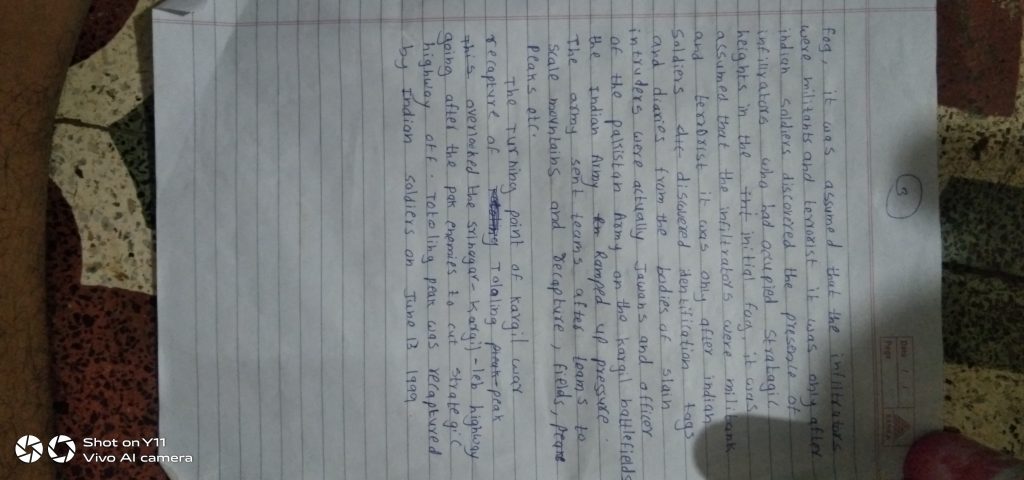 3
Date
Page
fog, it was assumed that the infiltrators
were militants and terrorist it was only after
indian soldiers discovered the presence of
infiltrators who had occupied strategic
heights in the initial fog, it was
assumed that the infiltrators were
and terrorist it was only after indian
soldiers discovered identification tags
and diaries from the bodies of slain
intruders were actually Jawans and officer
of the pakistan Army on the kargil battlefields
the Indian Army Ramped up pressure.
The army sent teams after teams to
scale mountains and recapture, fields,
peaks etc.
The turning point of kargil war
recapture of Tololing peak
this overlooked the srinagar-Kargil-leh highway
going after the pak enemies to cut strategic
highway off. Totoling peak was recaptured
by Indian soldiers on June 13 1999.
Shot on Y11
Vivo AI camera